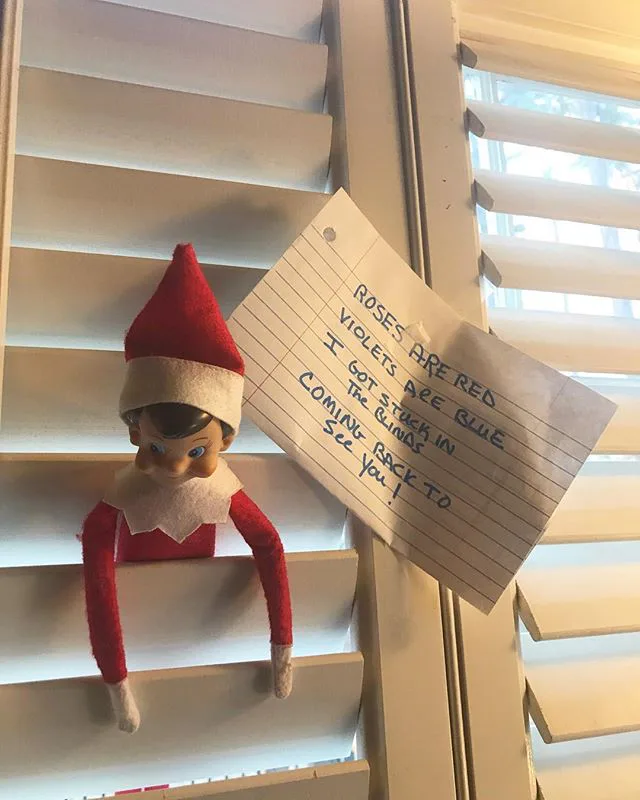 ROSES ARE RED
VIOLETS ARE BLUE
I GOT STUCK IN
The BLINDS
COMING BACK TO
See you!